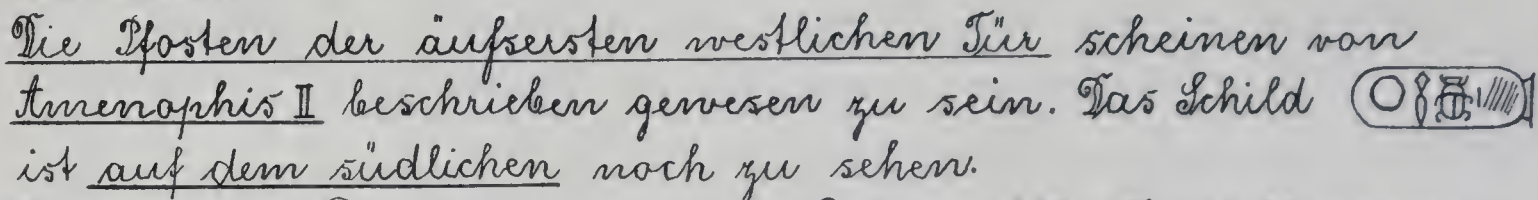 Die Pfosten der äußersten westlichen Tür scheinen von
Amenophis II beschrieben gewesen zu sein. Das Schild
ist auf dem südlichen noch zu sehen.